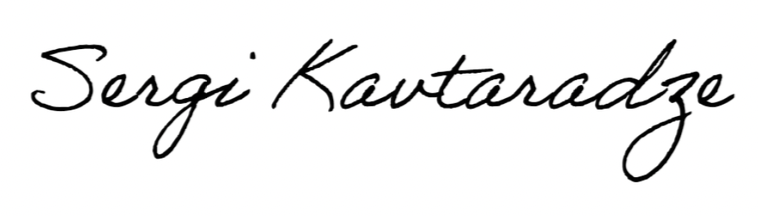 Sergi Kavtaradze